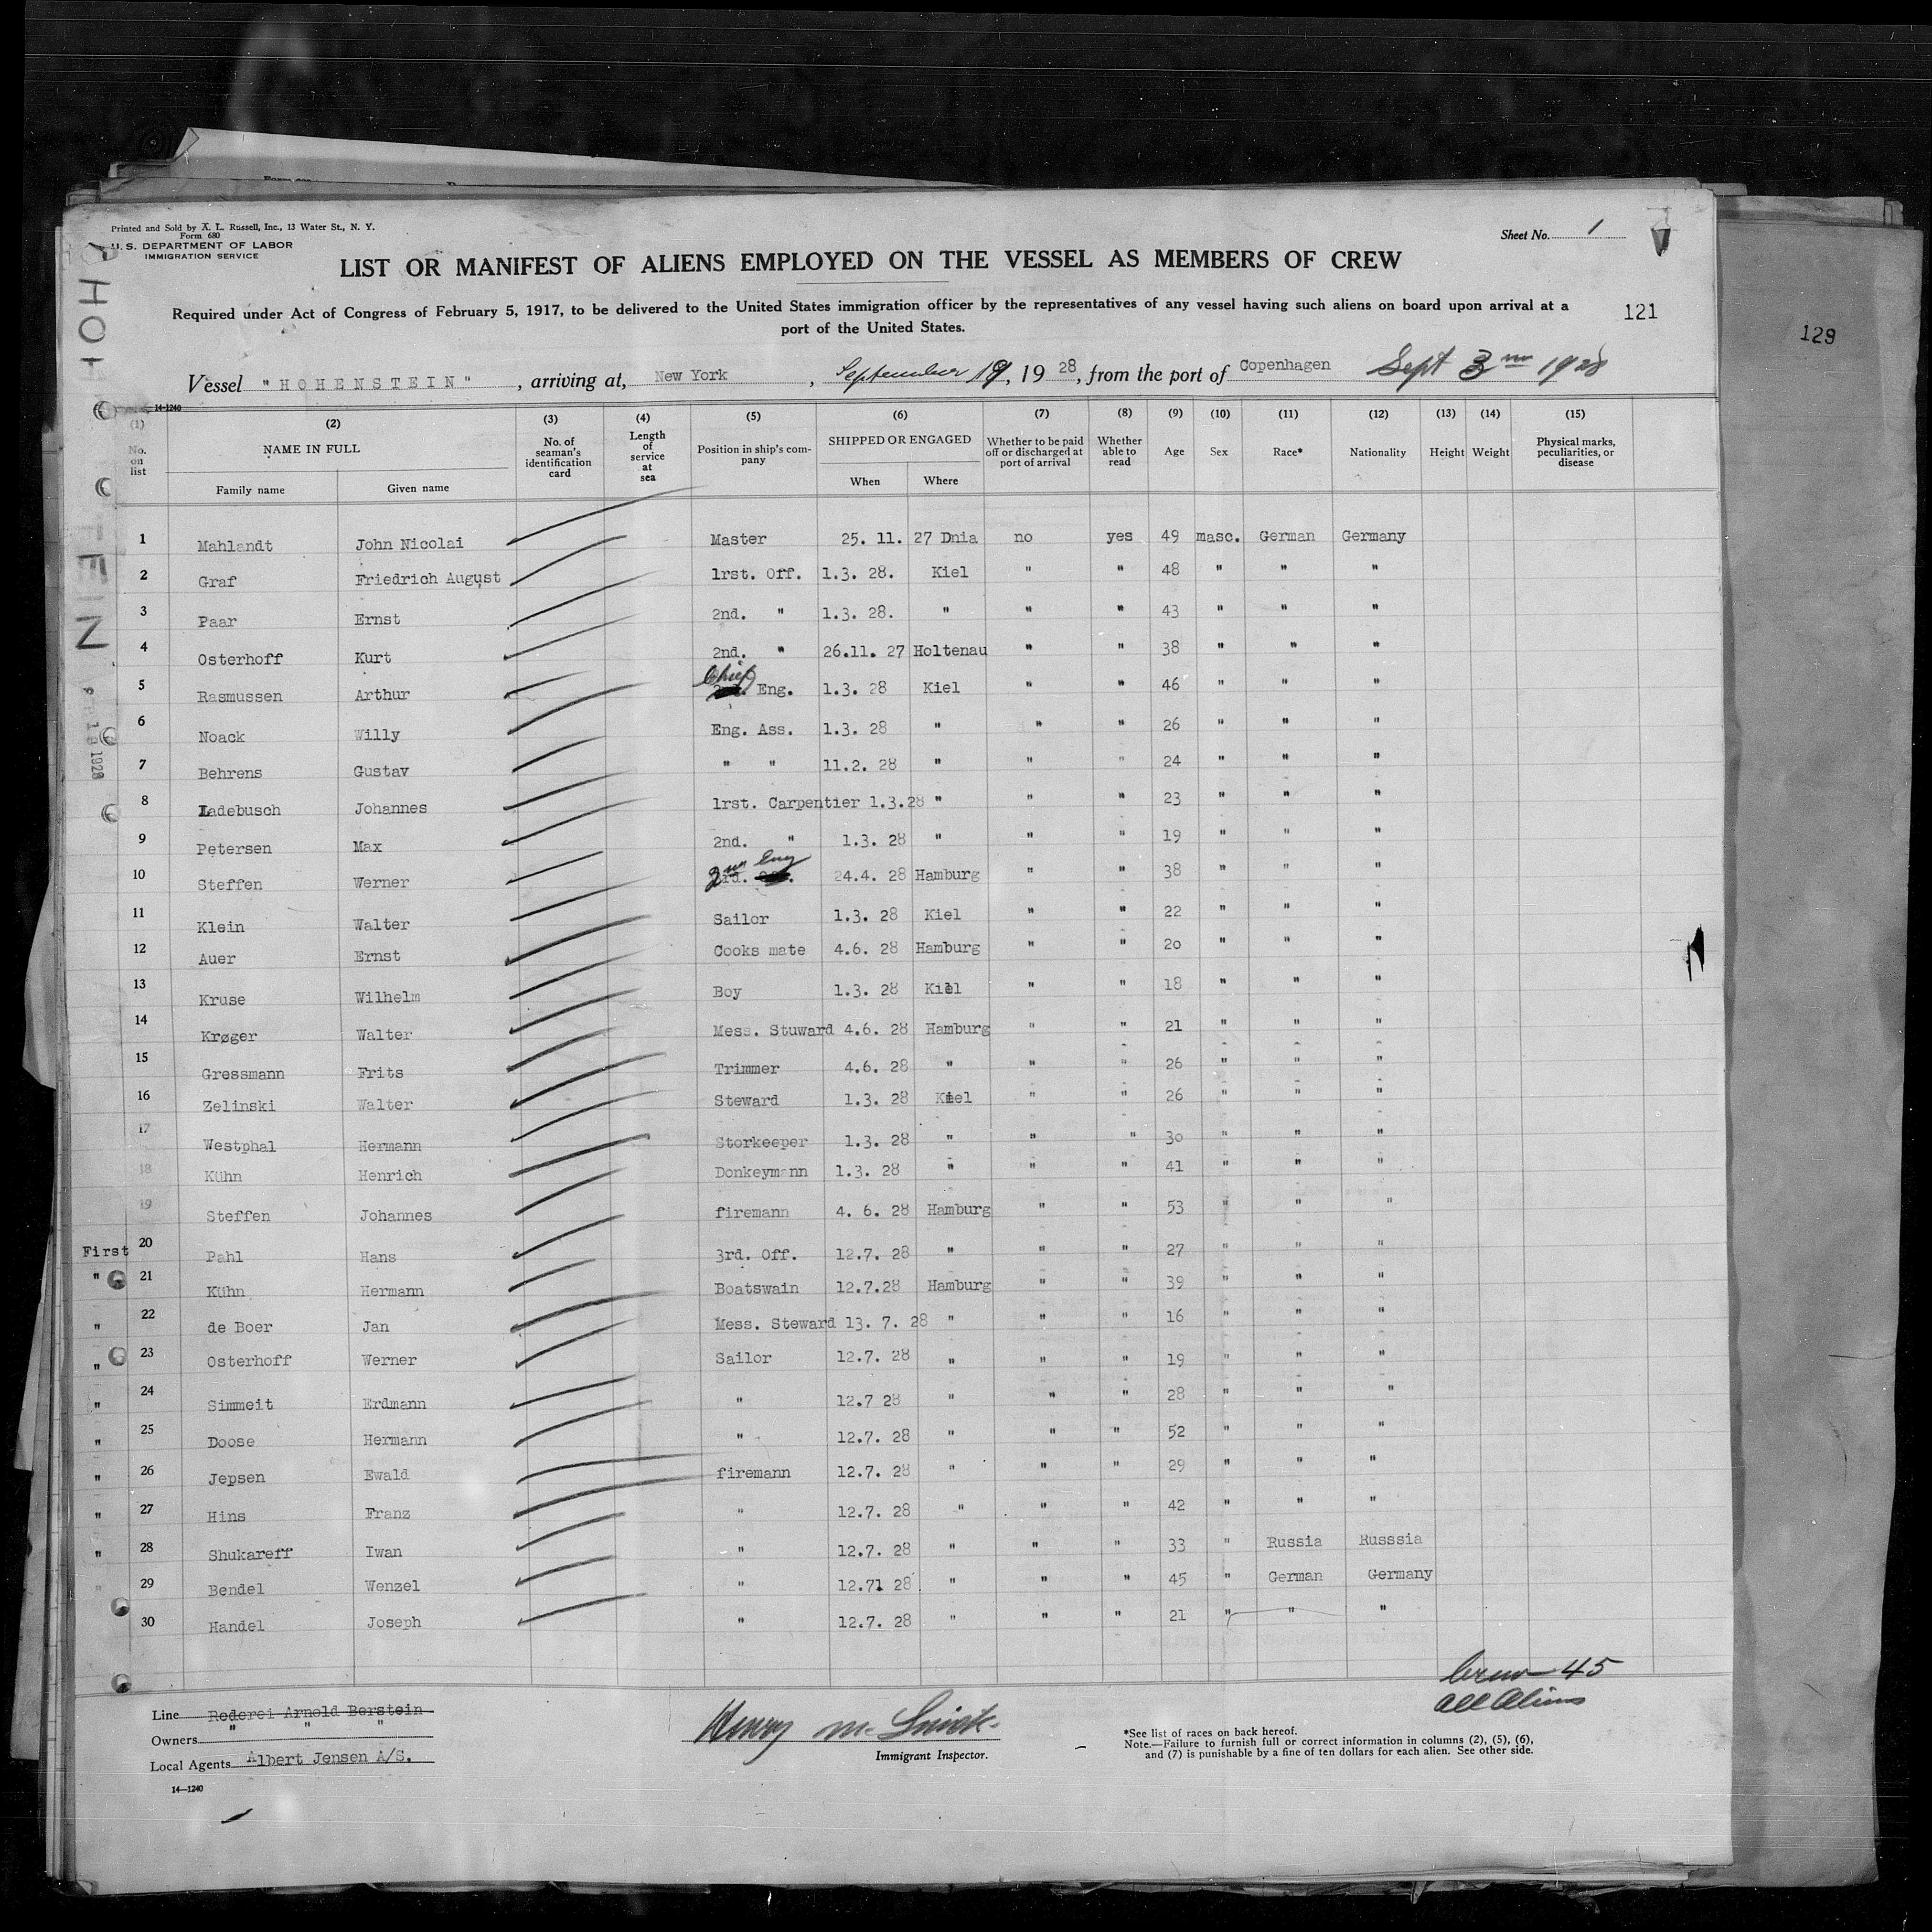 Printed and Sold by A. L. Russell, Inc., 13 Water St., N. Y.
Form 680
U. S. DEPARTMENT OF LABOR
IMMIGRATION SERVICE
Sheet No. 1
LIST OR MANIFEST OF ALIENS EMPLOYED ON THE VESSEL AS MEMBERS OF CREW
Required under Act of Congress of February 5, 1917, to be delivered to the United States immigration officer by the representatives of any vessel having such aliens on board upon arrival at a
port of the United States.
121
129
Vessel "HOHENSTEIN", arriving at, New York, September 19, 1928, from the port of Copenhagen Sept 3 1928
14-1240
(1) (2) (3) (4) (5) (6) (7) (8) (9) (10) (11) (12) (13) (14) (15)
No. on list NAME IN FULL Family name Given name No. of seaman's identification card Length of service at sea Position in ship's company SHIPPED OR ENGAGED When Where Whether to be paid off or discharged at port of arrival Whether able to read Age Sex Race* Nationality Height Weight Physical marks, peculiarities, or disease
1 Mahlandt John Nicolai Master 25. 11. 27 Dnia no yes 49 masc. German Germany
2 Graf Friedrich August 1rst. Off. 1.3. 28. Kiel " " 48 " " "
3 Paar Ernst 2nd. " 1.3. 28. " " " 43 " " "
4 Osterhoff Kurt 2nd. " 26.11. 27 Holtenau " " 38 " " "
5 Rasmussen Arthur Chief Eng. 1.3. 28 Kiel " " 46 " " "
6 Noack Willy Eng. Ass. 1.3. 28 " " " 26 " " "
7 Behrens Gustav " " 11.2. 28 " " " 24 " " "
8 Ladebusch Johannes 1rst. Carpentier 1.3.28 " " " 23 " " "
9 Petersen Max 2nd. " 1.3. 28 " " " 19 " " "
10 Steffen Werner 2nd Eng 24.4. 28 Hamburg " " 38 " " "
11 Klein Walter Sailor 1.3. 28 Kiel " " 22 " " "
12 Auer Ernst Cooks mate 4.6. 28 Hamburg " " 2o " " "
13 Kruse Wilhelm Boy 1.3. 28 Kiel " " 18 " " "
14 Krøger Walter Mess. Stuward 4.6. 28 Hamburg " " 21 " " "
15 Gressmann Frits Trimmer 4.6. 28 " " " 26 " " "
16 Zelinski Walter Steward 1.3. 28 Kiel " " 26 " " "
17 Westphal Hermann Storkeeper 1.3. 28 " " " 3o " " "
18 Kühn Henrich Donkeymann 1.3. 28 " " " 41 " " "
19 Steffen Johannes firemann 4. 6. 28 Hamburg " " 53 " " "
First 20 Pahl Hans 3rd. Off. 12.7. 28 " " " 27 " " "
" 21 Kühn Hermann Boatswain 12.7.28 Hamburg " " 39 " " "
" 22 de Boer Jan Mess. Steward 13. 7. 28 " " " 16 " " "
" 23 Osterhoff Werner Sailor 12.7. 28 " " " 19 " " "
" 24 Simmeit Erdmann " 12.7 28 " " " 28 " " "
" 25 Doose Hermann " 12.7. 28 " " " 52 " " "
" 26 Jepsen Ewald firemann 12.7. 28 " " " 29 " " "
" 27 Hins Franz " 12.7. 28 " " " 42 " " "
" 28 Shukareff Iwan " 12.7. 28 " " " 33 " Russia Russsia
" 29 Bendel Wenzel " 12.71 28 " " " 45 " German Germany
30 Handel Joseph " 12.7. 28 " " " 21 " " "
Crew 45
all Aliens
Line Rederei Arnold Berstein
Owners " " "
Local Agents Albert Jensen A/S.
14—1240
Henry M.
Immigrant Inspector.
*See list of races on back hereof.
Note.—Failure to furnish full or correct information in columns (2), (5), (6),
and (7) is punishable by a fine of ten dollars for each alien. See other side.